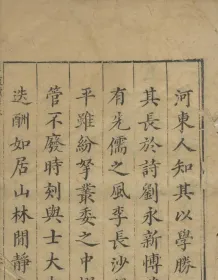 河東人知其以學勝
其長於詩劉永新博
有先儒之風李長沙
平雖紛拏叢委之中
管不廢時刻與士大
迭酬如居山林閒靜